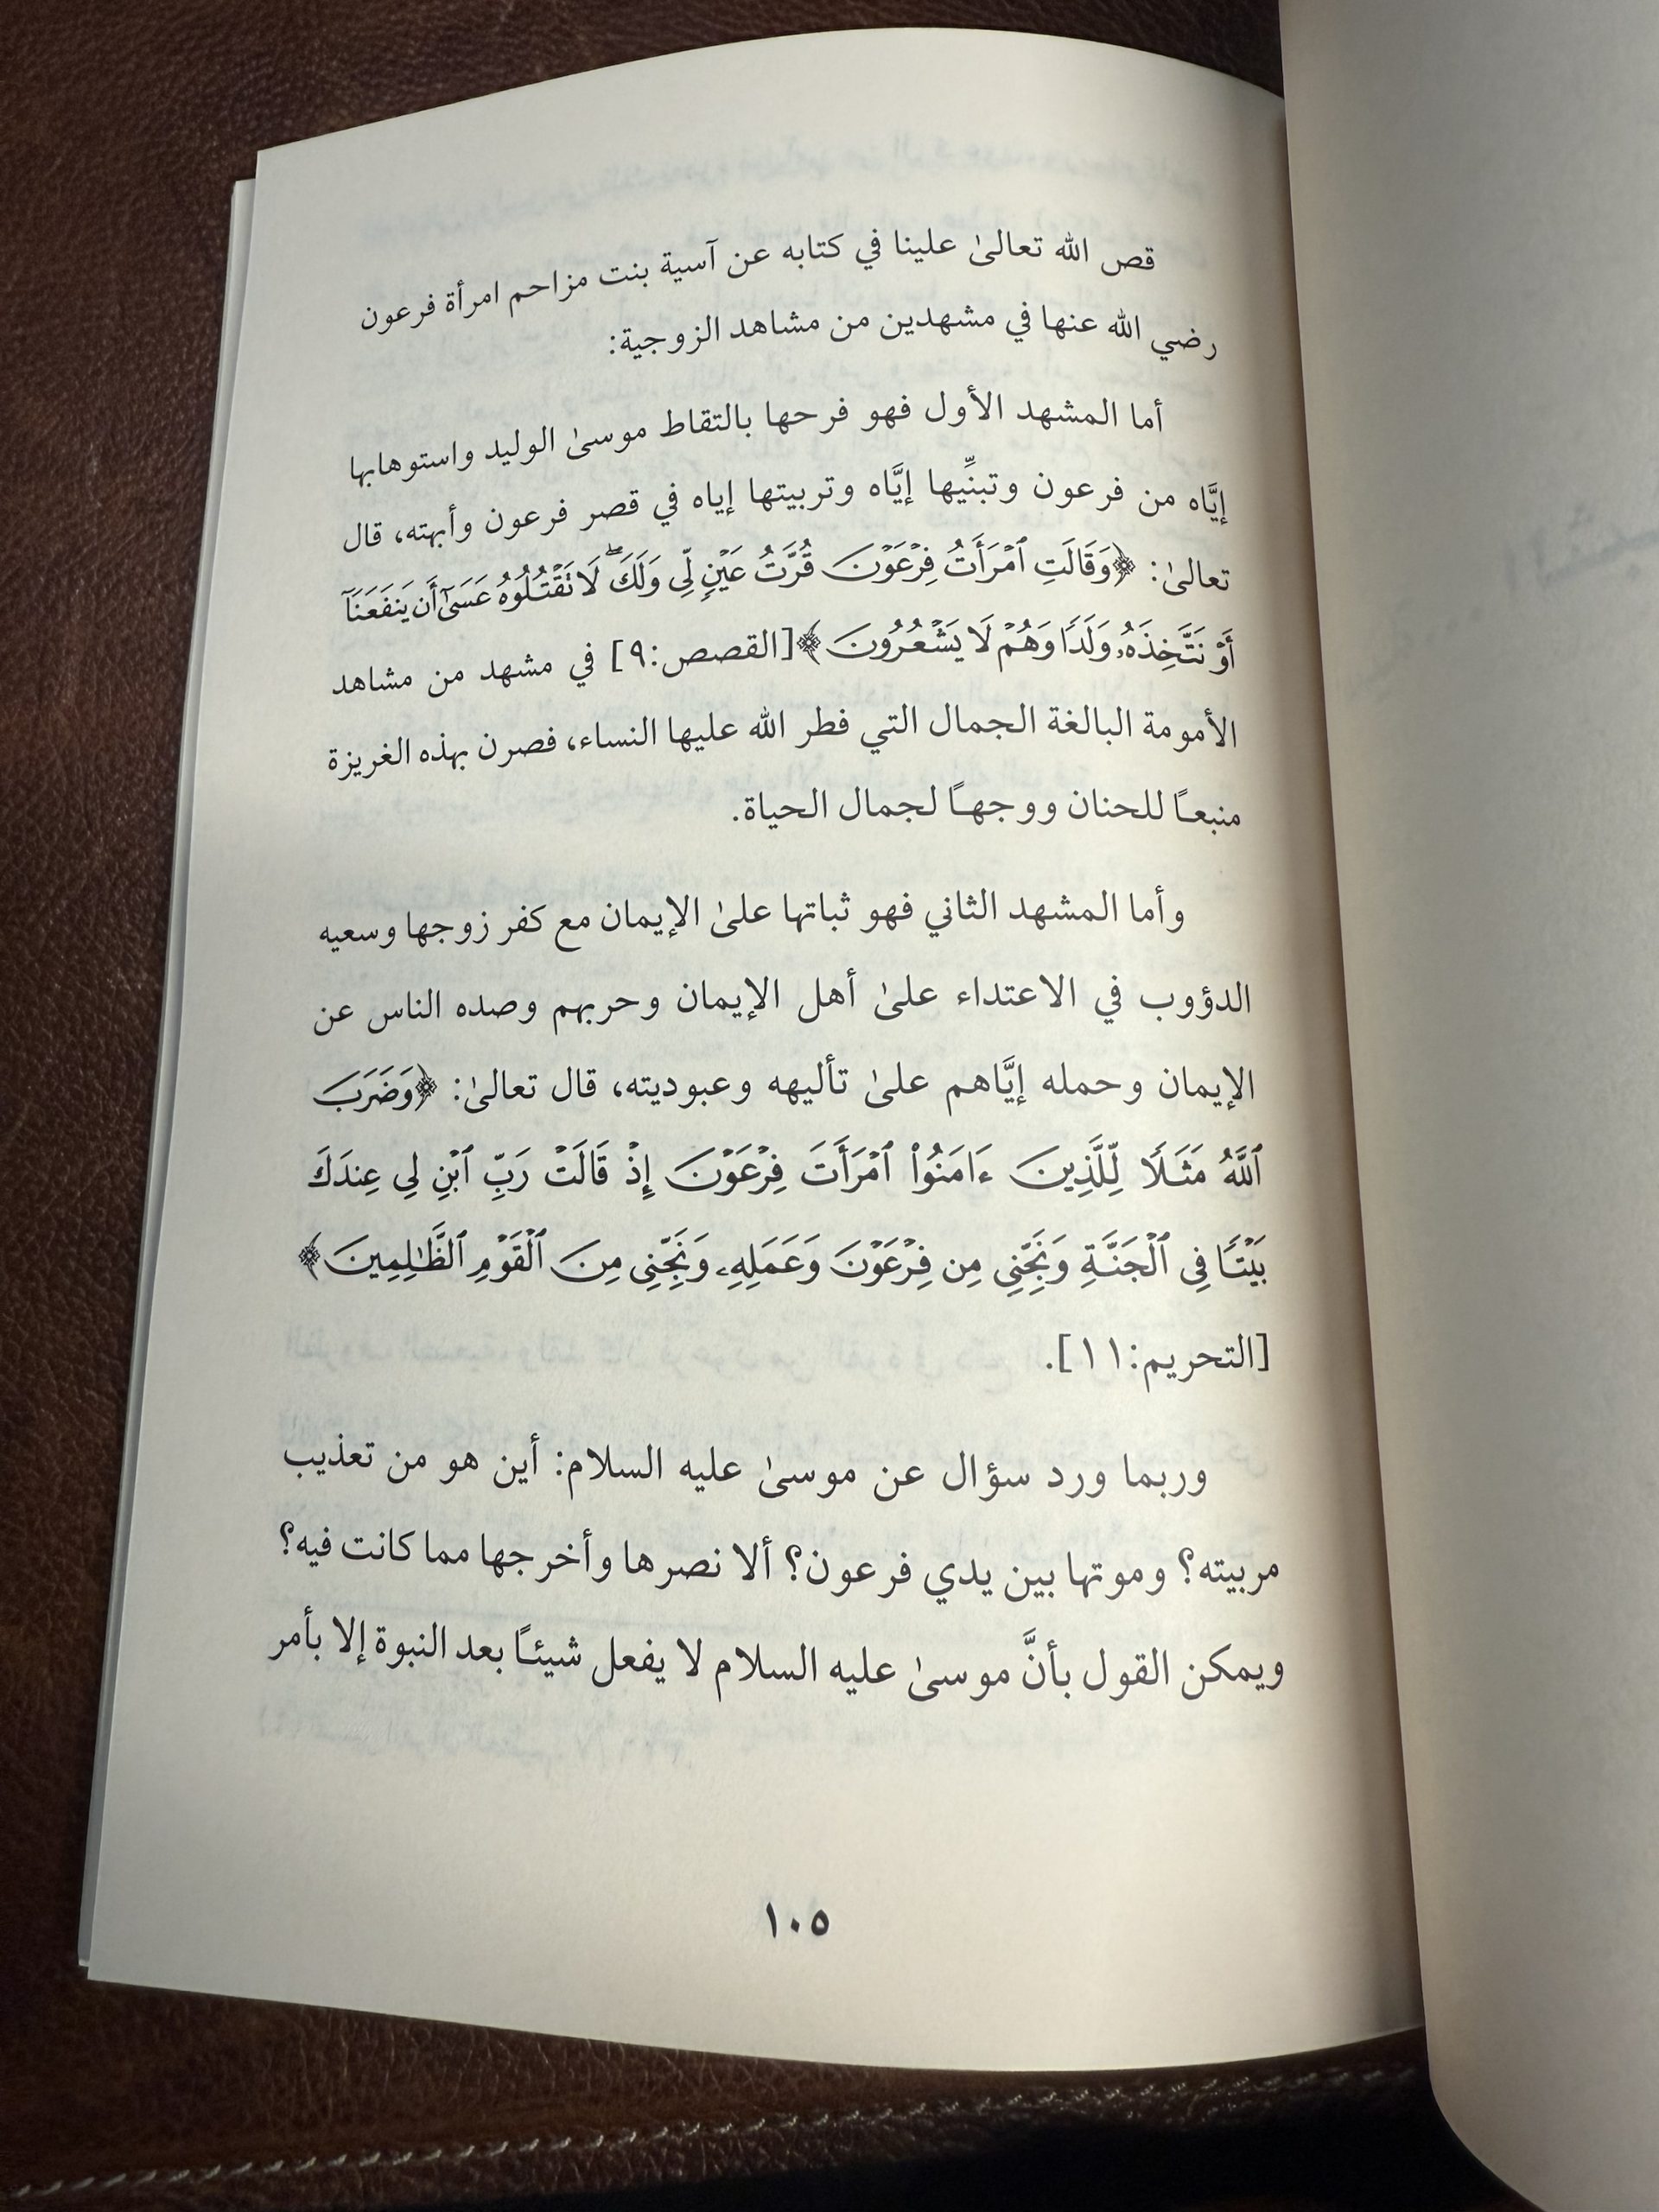 قص الله تعالىٰ علينا في كتابه عن آسية بنت مزاحم امرأة فرعون
رضي الله عنها في مشهدين من مشاهد الزوجية:
أما المشهد الأول فهو فرحها بالتقاط موسىٰ الوليد واستوهابها
إيَّاه من فرعون وتبنِّيها إيَّاه وتربيتها إياه في قصر فرعون وأبهته، قال
تعالىٰ: ﴿وَقَالَتِ ٱمْرَأَتُ فِرْعَوْنَ قُرَّتُ عَيْنٍ لِّى وَلَكَ ۖ لَا تَقْتُلُوهُ عَسَىٰٓ أَن يَنفَعَنَآ
أَوْ نَتَّخِذَهُۥ وَلَدًا وَهُمْ لَا يَشْعُرُونَ﴾ [القصص:٩] في مشهد من مشاهد
الأمومة البالغة الجمال التي فطر الله عليها النساء، فصرن بهذه الغريزة
منبعًا للحنان ووجهًا لجمال الحياة.
وأما المشهد الثاني فهو ثباتها علىٰ الإيمان مع كفر زوجها وسعيه
الدؤوب في الاعتداء علىٰ أهل الإيمان وحربهم وصده الناس عن
الإيمان وحمله إيَّاهم علىٰ تأليهه وعبوديته، قال تعالىٰ: ﴿وَضَرَبَ
ٱللَّهُ مَثَلًا لِّلَّذِينَ ءَامَنُوا۟ ٱمْرَأَتَ فِرْعَوْنَ إِذْ قَالَتْ رَبِّ ٱبْنِ لِى عِندَكَ
بَيْتًا فِى ٱلْجَنَّةِ وَنَجِّنِى مِن فِرْعَوْنَ وَعَمَلِهِۦ وَنَجِّنِى مِنَ ٱلْقَوْمِ ٱلظَّٰلِمِينَ﴾
[التحريم:١١].
وربما ورد سؤال عن موسىٰ عليه السلام: أين هو من تعذيب
مربيته؟ وموتها بين يدي فرعون؟ ألا نصرها وأخرجها مما كانت فيه؟
ويمكن القول بأنَّ موسىٰ عليه السلام لا يفعل شيئًا بعد النبوة إلا بأمر
١٠٥